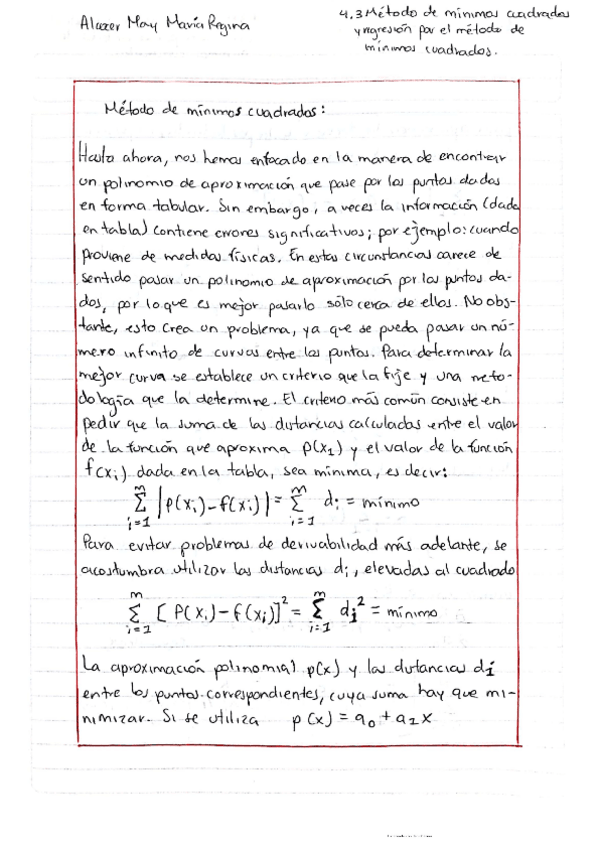 Alcocer May María Regina
4.3 Método de mínimos cuadrados
y regresión por el método de
mínimos cuadrados.
Método de mínimos cuadrados:
Hasta ahora, nos hemos enfocado en la manera de encontrar
un polinomio de aproximación que pase por los puntos dados
en forma tabular. Sin embargo, a veces la información (dada
en tabla) contiene errores significativos; por ejemplo: cuando
proviene de medidas físicas. En estas circunstancias carece de
sentido pasar un polinomio de aproximación por los puntos da-
dos, por lo que es mejor pasarlo sólo cerca de ellos. No obs-
tante, esto crea un problema, ya que se pueda pasar un nú-
mero infinito de curvas entre los puntos. Para determinar la
mejor curva se establece un criterio que la fije y una meto-
dología que la determine. El criterio más común consiste en
pedir que la suma de las distancias calculadas entre el valor
de la función que aproxima p(x₁) y el valor de la función
f(xᵢ) dada en la tabla, sea mínima, es decir:
m∑i=1 |p(xᵢ)-f(xᵢ)| = m∑i=1 dᵢ = mínimo
Para evitar problemas de derivabilidad más adelante, se
acostumbra utilizar las distancias dᵢ, elevadas al cuadrado
m∑i=1 [P(xᵢ)-f(xᵢ)]² = m∑i=1 dᵢ² = mínimo
La aproximación polinomial p(x) y las distancias dᵢ
entre los puntos correspondientes, cuya suma hay que mi-
nimizar. Si se utiliza p(x) = a₀ + a₁x